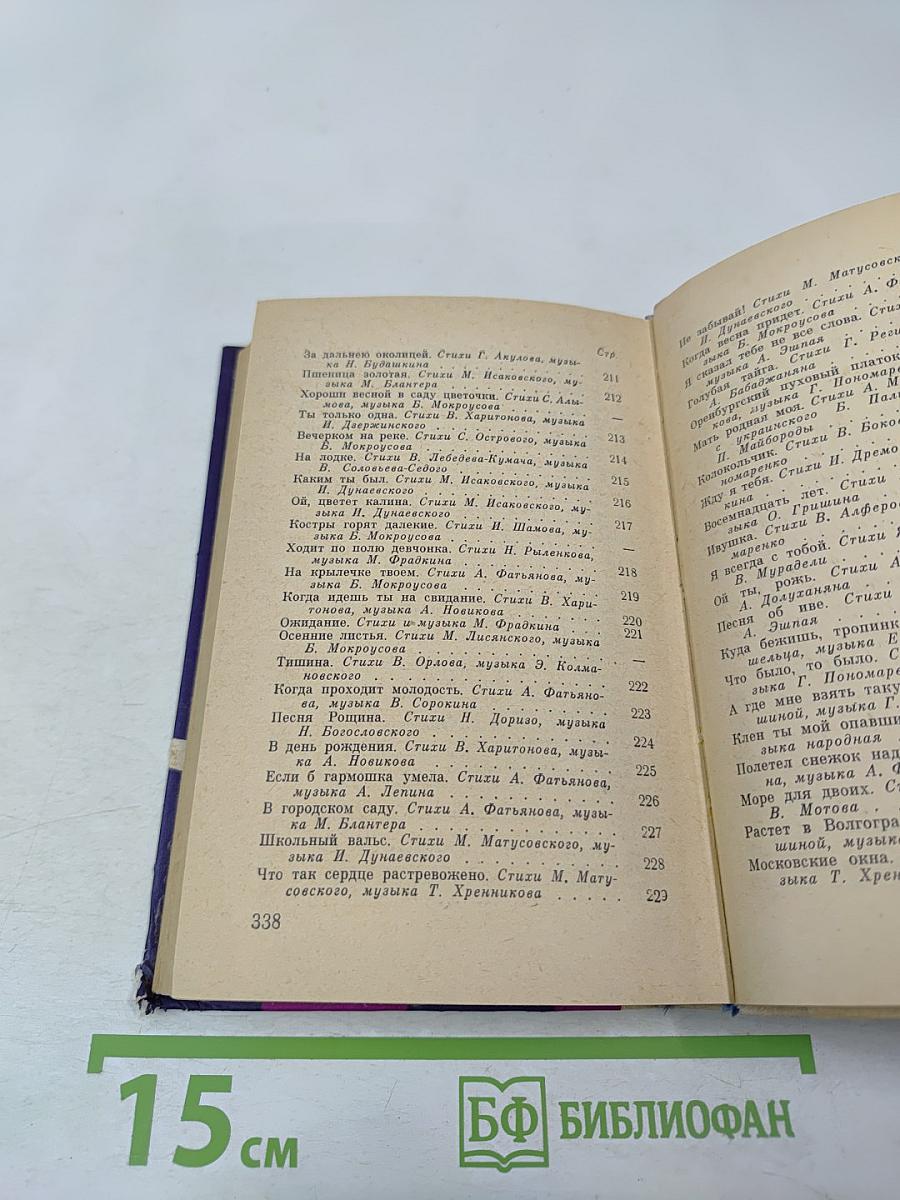 Стр.
За дальнею околицей. Стихи Г. Акулова, музы-
ка Н. Будашкина . . . . . . . . . . . 211
Пшеница золотая. Стихи М. Исаковского, му-
зыка М. Блантера . . . . . . . . . . . 212
Хороши весной в саду цветочки. Стихи С. Алы-
мова, музыка Б. Мокроусова . . . . . . . —
Ты только одна. Стихи В. Харитонова, музыка
И. Дзержинского . . . . . . . . . . . 213
Вечерком на реке. Стихи С. Острового, музыка
Б. Мокроусова . . . . . . . . . . . . 214
На лодке. Стихи В. Лебедева-Кумача, музыка
В. Соловьева-Седого . . . . . . . . . . 215
Каким ты был. Стихи М. Исаковского, музыка
И. Дунаевского . . . . . . . . . . . . 216
Ой, цветет калина. Стихи М. Исаковского, му-
зыка И. Дунаевского . . . . . . . . . . 217
Костры горят далекие. Стихи И. Шамова, му-
зыка Б. Мокроусова . . . . . . . . . . —
Ходит по полю девчонка. Стихи Н. Рыленкова,
музыка М. Фрадкина . . . . . . . . . . 218
На крылечке твоем. Стихи А. Фатьянова, му-
зыка Б. Мокроусова . . . . . . . . . . 219
Когда идешь ты на свидание. Стихи В. Хари-
тонова, музыка А. Новикова . . . . . . . 220
Ожидание. Стихи и музыка М. Фрадкина . . . . 221
Осенние листья. Стихи М. Лисянского, музыка
Б. Мокроусова . . . . . . . . . . . . —
Тишина. Стихи В. Орлова, музыка Э. Колма-
новского . . . . . . . . . . . . . . 222
Когда проходит молодость. Стихи А. Фатьяно-
ва, музыка В. Сорокина . . . . . . . . . 223
Песня Рощина. Стихи Н. Доризо, музыка
Н. Богословского . . . . . . . . . . . 224
В день рождения. Стихи В. Харитонова, музы-
ка А. Новикова . . . . . . . . . . . . 225
Если б гармошка умела. Стихи А. Фатьянова,
музыка А. Лепина . . . . . . . . . . . 226
В городском саду. Стихи А. Фатьянова, музы-
ка М. Блантера . . . . . . . . . . . . 227
Школьный вальс. Стихи М. Матусовского, му-
зыка И. Дунаевского . . . . . . . . . . 228
Что так сердце растревожено. Стихи М. Мату-
совского, музыка Т. Хренникова . . . . . 229
338
Не забывай! Стихи М. Матусовск
И. Дунаевского
Когда весна придет. Стихи А. Ф
зыка Б. Мокроусова
Я сказал тебе не все слова. Стих
музыка А. Эшпая
Голубая тайга. Стихи Г. Реги
А. Бабаджаняна
Оренбургский пуховый платок
кова, музыка Г. Пономаре
Мать родная моя. Стихи А. М
с украинского Б. Пали
П. Майбороды
Колокольчик. Стихи В. Боков
номаренко
Жду я тебя. Стихи И. Дремо
кина
Восемнадцать лет. Стихи
зыка О. Гришина
Ивушка. Стихи В. Алферо
маренко
Я всегда с тобой. Стихи Я
В. Мурадели
Ой ты, рожь. Стихи А
А. Долуханяна
Песня об иве. Стихи
А. Эшпая
Куда бежишь, тропинк
шельца, музыка Е
Что было, то было. С
зыка Г. Пономаре
А где мне взять таку
шиной, музыка Г.
Клен ты мой опавши
зыка народная
Полетел снежок над
на, музыка А. Ф
Море для двоих. Ст
В. Мотова
Растет в Волгогра
шиной, музыка
Московские окна.
зыка Т. Хрен
15 см
БФ БИБЛИОФАН